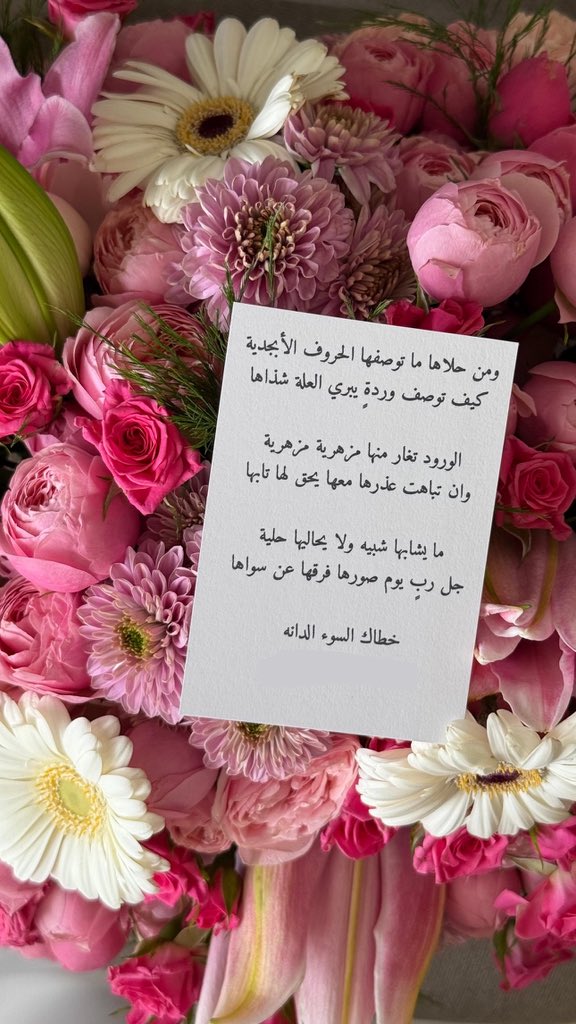 ومن حلاها ما توصفها الحروف الأبجدية
كيف توصف وردةٍ يبري العلة شذاها
الورود تغار منها مزهرية مزهرية
وان تباهت عذرها معها يحق لها تباها
ما يشابها شبيه ولا يحاليها حلية
جل ربٍ يوم صورها فرقها عن سواها
خطاك السوء الدانه